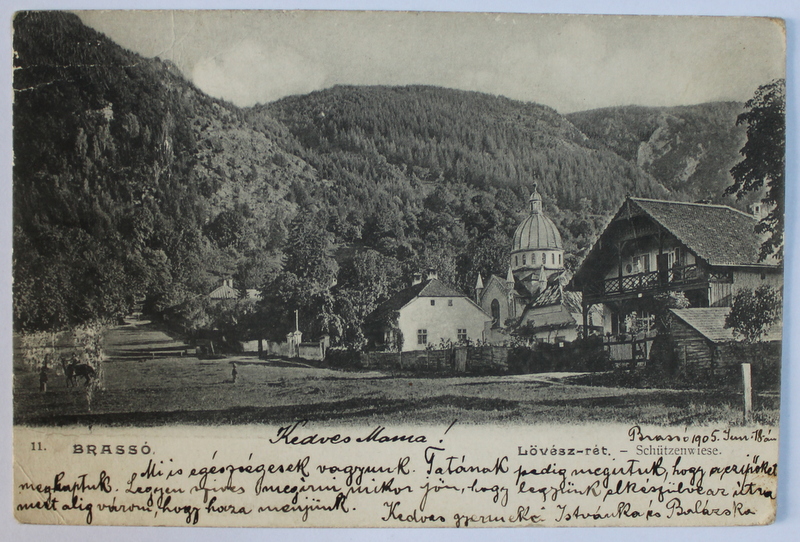 Kedves Mama!
11. BRASSÓ.
Lövész-rét. – Schützenwiese.
Brassó 1905. Jun. 18án
Mi is egészségesek vagyunk. Tatának pedig megirtuk, hogy a czipőket
megkaptuk. Legyen szives megirni mikor jön, hogy legyünk elkészülve az útra
mert alig várom, hogy haza menjünk.
Kedves gyermekei Istvánka és Balázska